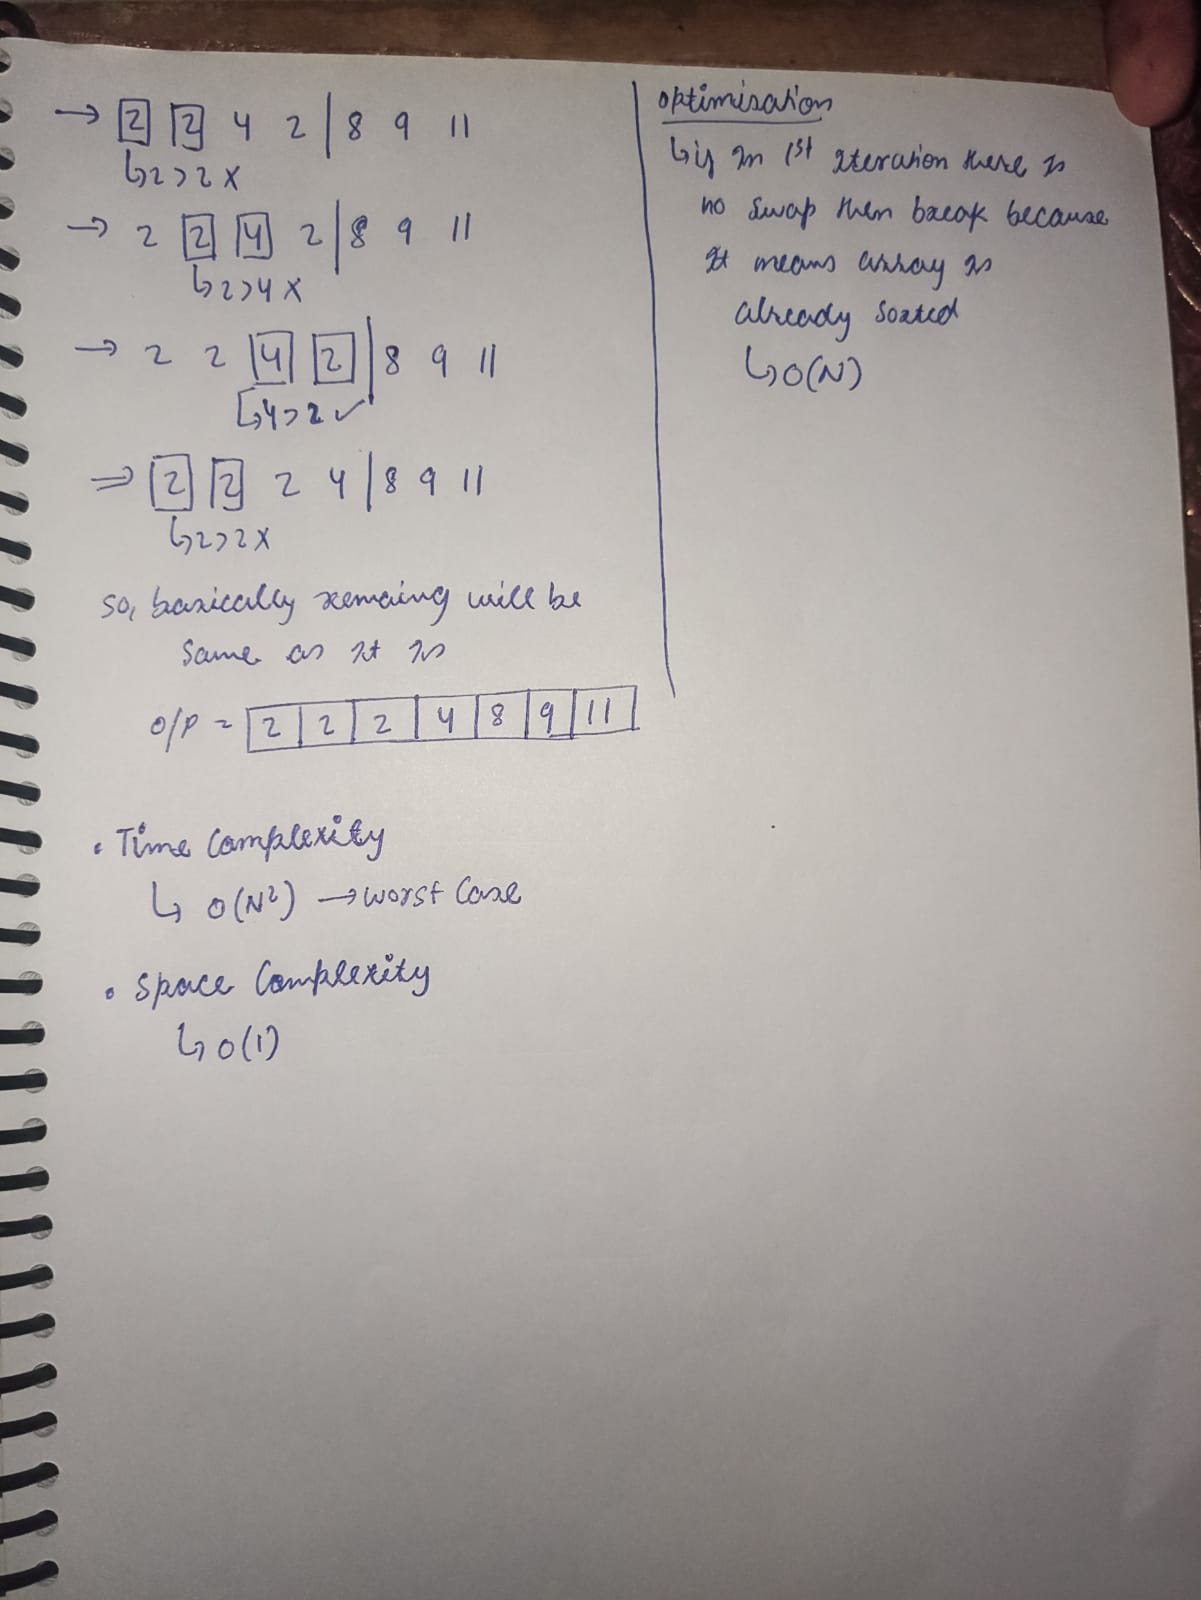 → 2 2 4 2 | 8 9 11
↳ 2>2 x
→ 2 2 4 2 | 8 9 11
↳ 2>4 x
→ 2 2 4 2 | 8 9 11
↳ 4>2 ✓
⇒ 2 2 2 4 | 8 9 11
↳ 2>2 x
So, basically remaing will be
same as it is
O/P = 2 2 2 4 8 9 11
• Time Complexity
↳ O(N²) → worst Case
• Space Complexity
↳ O(1)
optimisation
↳ if in 1st iteration there is
no swap then break because
it means array is
already sorted
↳ O(N)